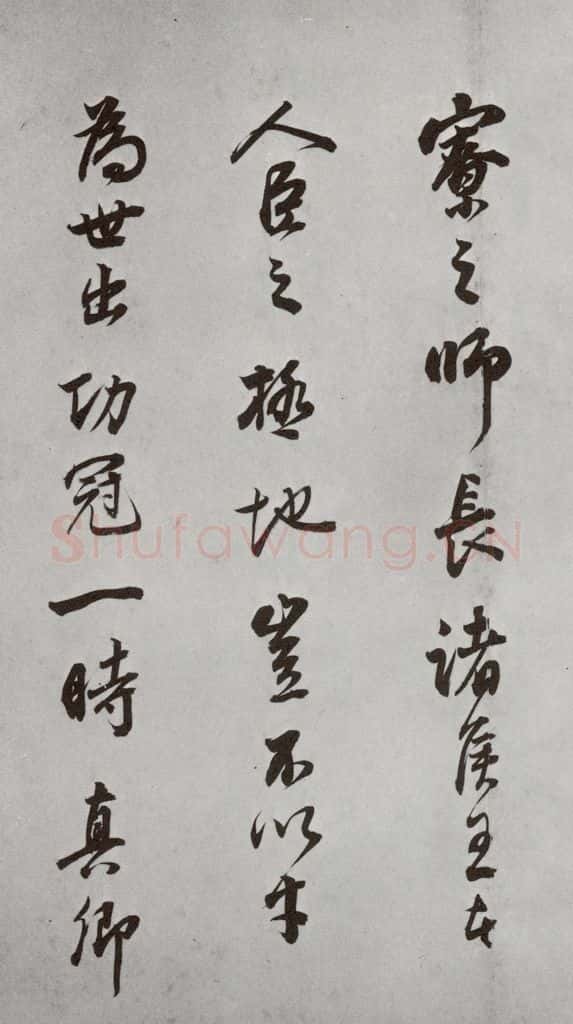 寮之師長諸侯王者
人臣之極地豈不以才
為世出功冠一時真卿
Shufawang.CN